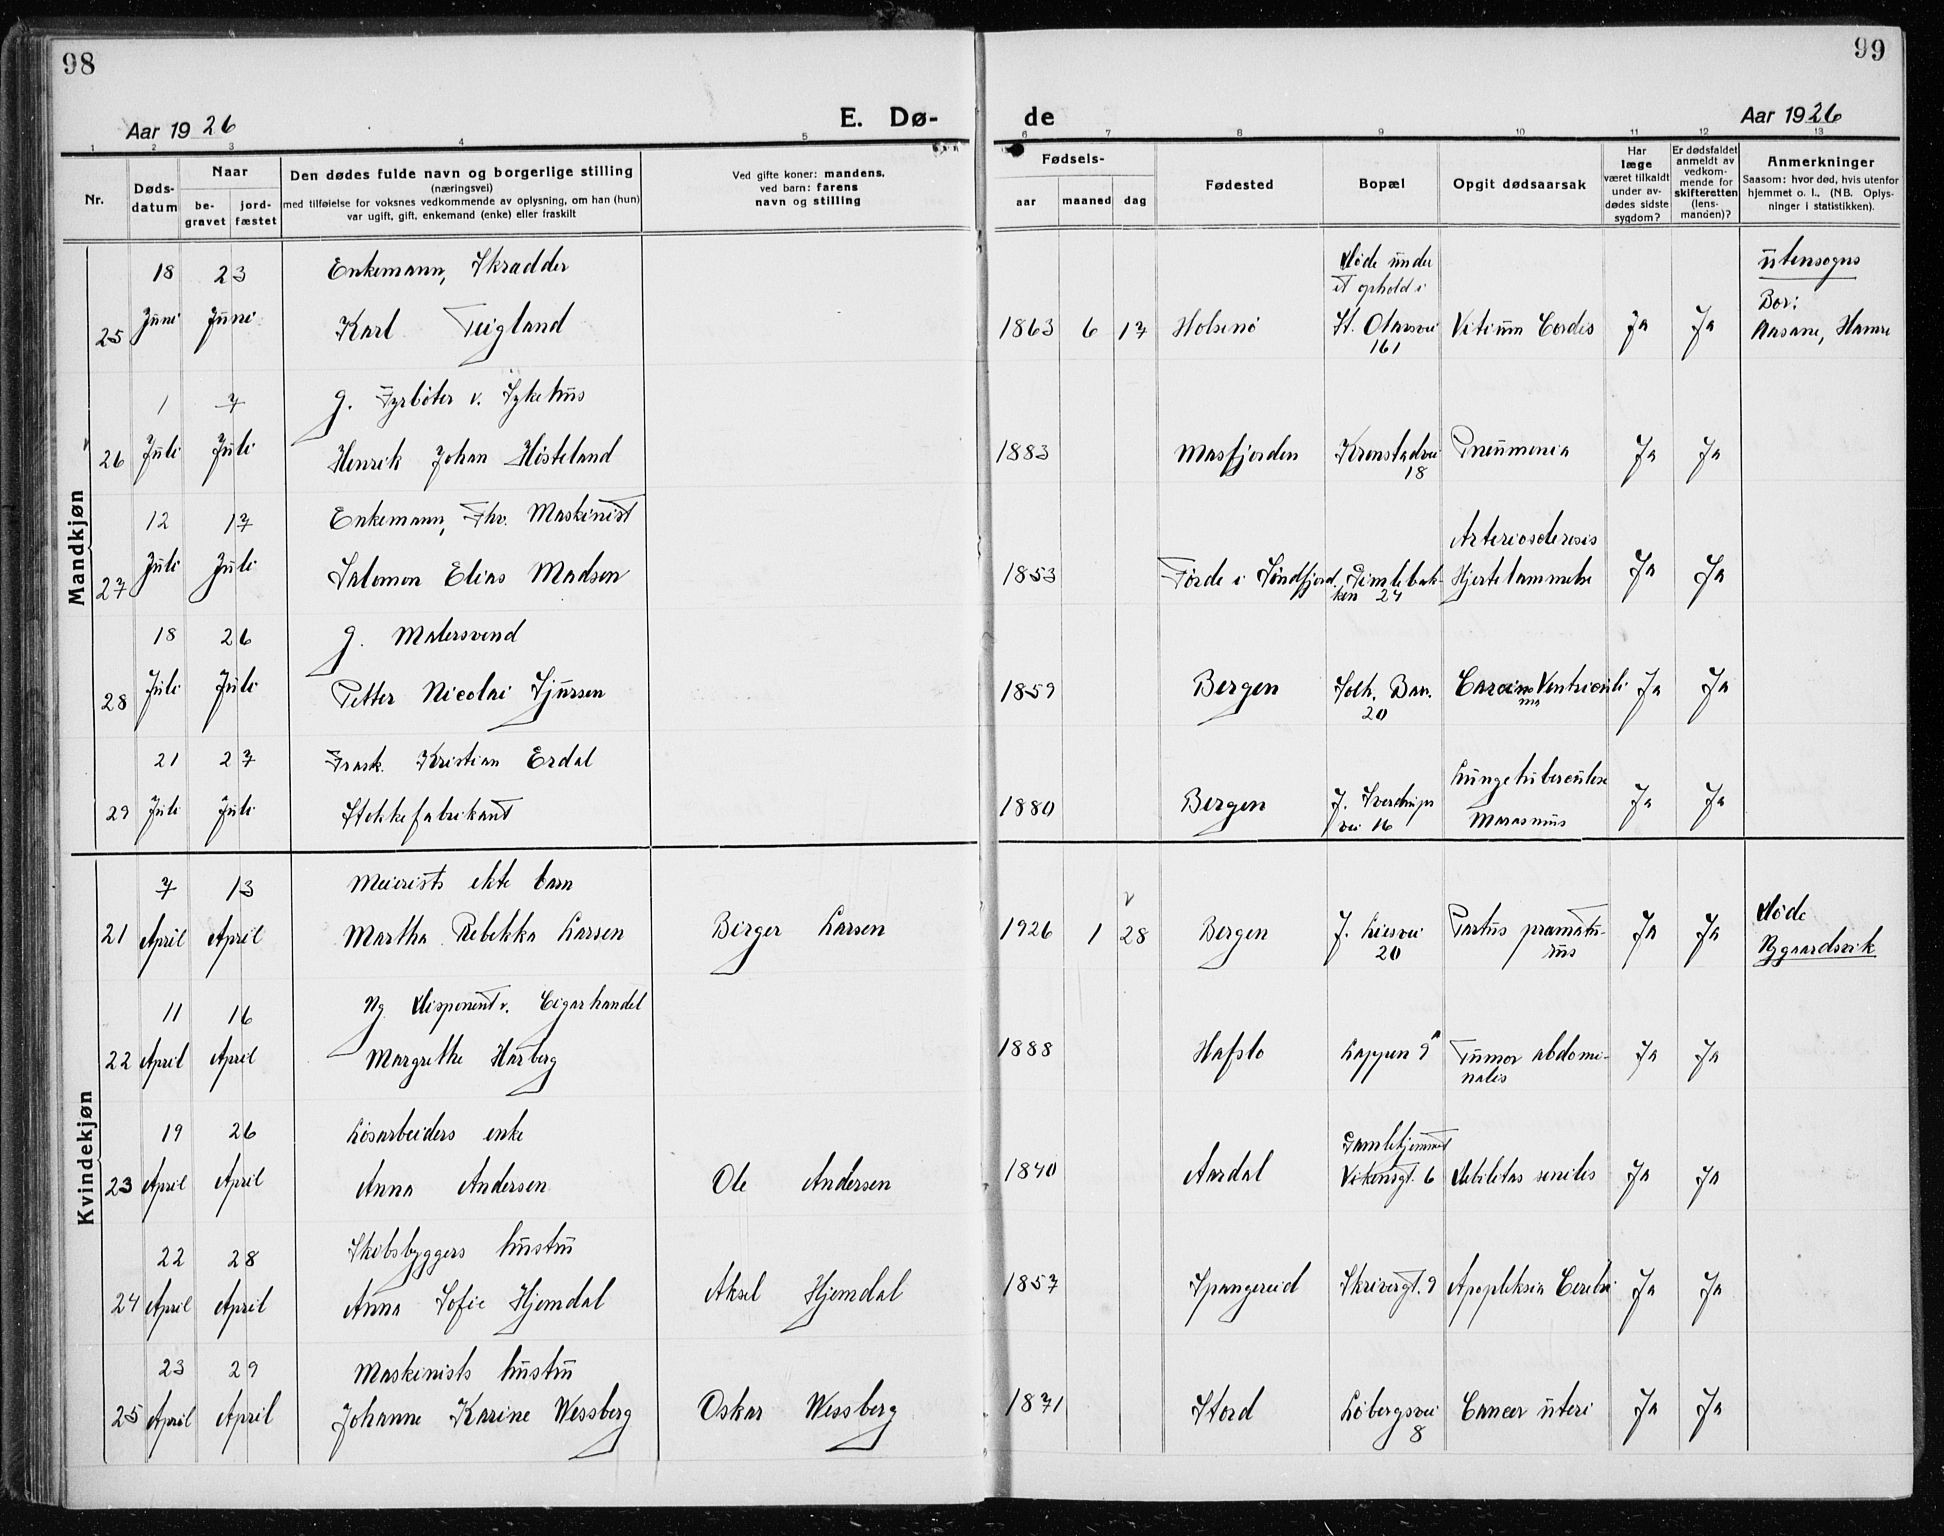 98
99
Aar 1926
E. Dø-
de
Aar 1926
1 2 3 4 5 6 7 8 9 10 11 12 13
Nr.
Døds-
datum
Naar
be-
gravet
jord-
fæstet
Den dødes fulde navn og borgerlige stilling
(næringsvei)
med tilføielse for voksnes vedkommende av oplysning, om han (hun)
var ugift, gift, enkemand (enke) eller fraskilt
Ved gifte koner: mandens,
ved barn: farens
navn og stilling
Fødsels-
aar
maaned
dag
Fødested
Bopæl
Opgit dødsaarsak
Har
læge
været tilkaldt
under av-
dødes sidste
sygdom?
Er dødsfaldet
anmeldt av
vedkom-
mende for
skifteretten
(lens-
manden)?
Anmerkninger
Saasom: hvor død, hvis utenfor
hjemmet o. l., (NB. Oplys-
ninger i statistikken).
Mandkjøn
18 23 Enkemann, Skradder Døde under utensogns
et ophold i Bor:
25 Juni Juni Karl Teigland 1863 6 17 Holsenø St. Olavsvei Vitium Cordis Ja Ja Aasane, Hamre
161
1 7 g. Fyrbøter v. Sykehus
26 Juli Juli Henrik Johan Høsteland 1883 Masfjorden Kronstadvei Pneumonia Ja Ja
18
12 17 Enkemann, Fhv. Maskinist Arteriosclerosis
27 Juli Juli Salomon Elias Madsen 1853 Førde i Søndfjord Gimlebak- Hjertelammelse Ja Ja
ken 27
18 26 g. Malersvend
28 Juli Juli Petter Nicolai Sjursen 1859 Bergen Solh. Ban. Carcino Ventriculi Ja Ja
20 ma
21 27 Frask. Kristian Erdal Lungetuberculose
29 Juli Juli Stokkefabrikant 1880 Bergen J. Sverdrups Marasmus Ja Ja
vei 16
Kvindekjøn
7 13 Meierists ekte barn Døde
21 April April Martha Rebekka Larsen Birger Larsen 1926 1 28 Bergen J. Liesvei Partus præmatu- Ja Ja Nygaardsvik
20 rus
11 16 Ug Disponent v. Cigarhandel
22 April April Margrethe Harberg 1888 Hafslo Lappen 9a Tumor abdomi- Ja Ja
nalis
19 26 Løsarbeiders enke Gamlehjemmet
23 April April Anna Andersen Ole Andersen 1840 Aardal Vikensgt. 6 Debilitas senilis Ja Ja
22 28 Skibsbyggers hustru
24 April April Anna Sofie Hjemdal Aksel Hjemdal 1857 Spangereid Skrivergt. 9 Apopleksia Cerebri Ja Ja
23 29 Maskinists hustru
25 April April Johanne Karine Wessberg Oskar Wessberg 1871 Stord Løbergsvei Cancer uteri Ja Ja
8